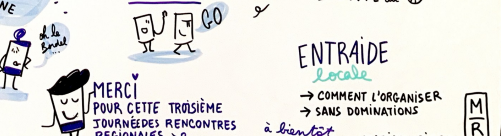 NE
GO
oh le
Bordel...
ENTRAIDE
locale
→ COMMENT L'ORGANISER
→ SANS DOMINATIONS
MERCI
POUR CETTE TROISIÈME
JOURNÉEDES RENCONTRES
RÉGIONALES
à bientôt
M
R